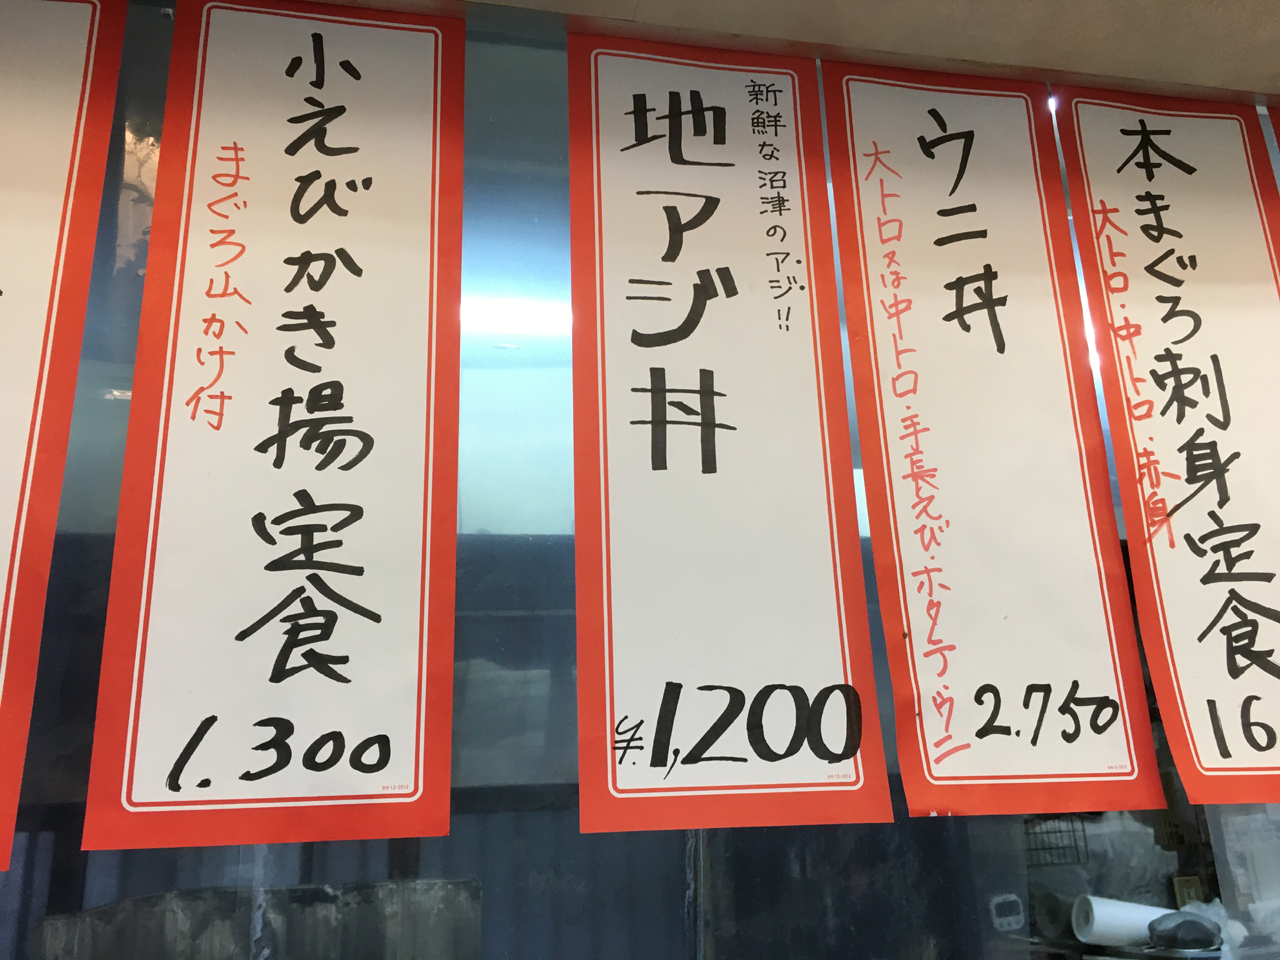 小えびかき揚定食
まぐろ山かけ付
1.300
新鮮な沼津のアジ!!
地アジ丼
¥1,200
ウニ丼
大トロ又は中トロ・手長えび・ホタテ・ウニ
2.750
本まぐろ刺身定食
大トロ・中トロ・赤身
16